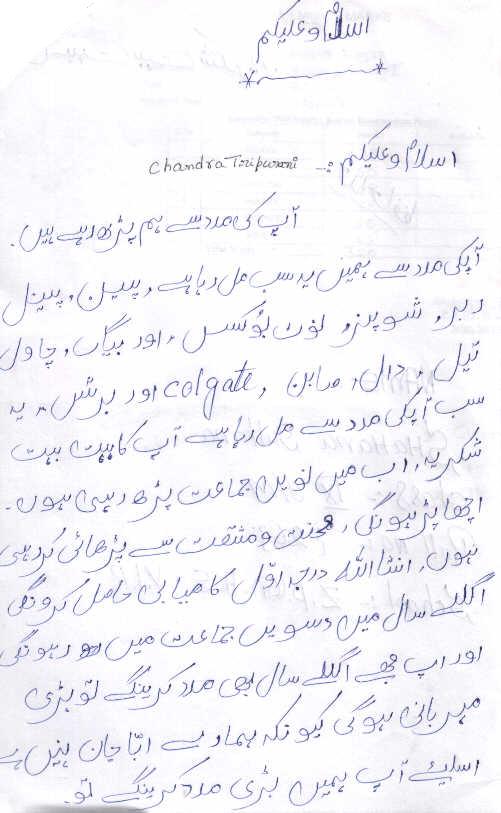 اسلام و علیکم
اسلام و علیکم :- Chandra Tripurani
آپ کی مدد سے ہم پڑھ رہے ہیں۔
آپکی مدد سے ہمیں یہ سب مل رہا ہے، پین، پینسل
ربر، شوپنر، نوٹ بُوکسس، اور بیاگ، چاول
تیل، دال، صابن، colgate اور برش، یہ
سب آپکی مدد سے مل رہا ہے آپ کا بہت بہت
شکریہ، اب میں نویں جماعت پڑھ رہی ہوں۔
اچھا پڑہونگی، محنت و مشقت سے پڑھائی کررہی
ہوں، انشااللہ درجہ اوّل کامیابی حاصل کرونگی
اگلے سال میں دسویں جماعت میں رہونگی
اور اپ مجھے اگلے سال بھی مدد کرینگے تو بڑی
مہربانی ہوگی کیونکہ ہمارے ابّا جان نہیں ہے
اسلیئے آپ ہمیں بڑی مدد کرینگے تو۔